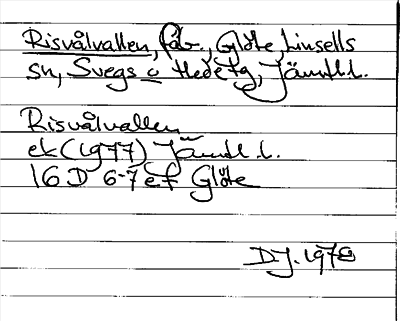 Risvålvallen, fäb., Glöte, Linsells
sn, Svegs o Hede tg, Jämtl.l.
Risvålvallen
ek (1977) Jämtl. l.
16 D 6-7 ef Glöte
DJ. 1978